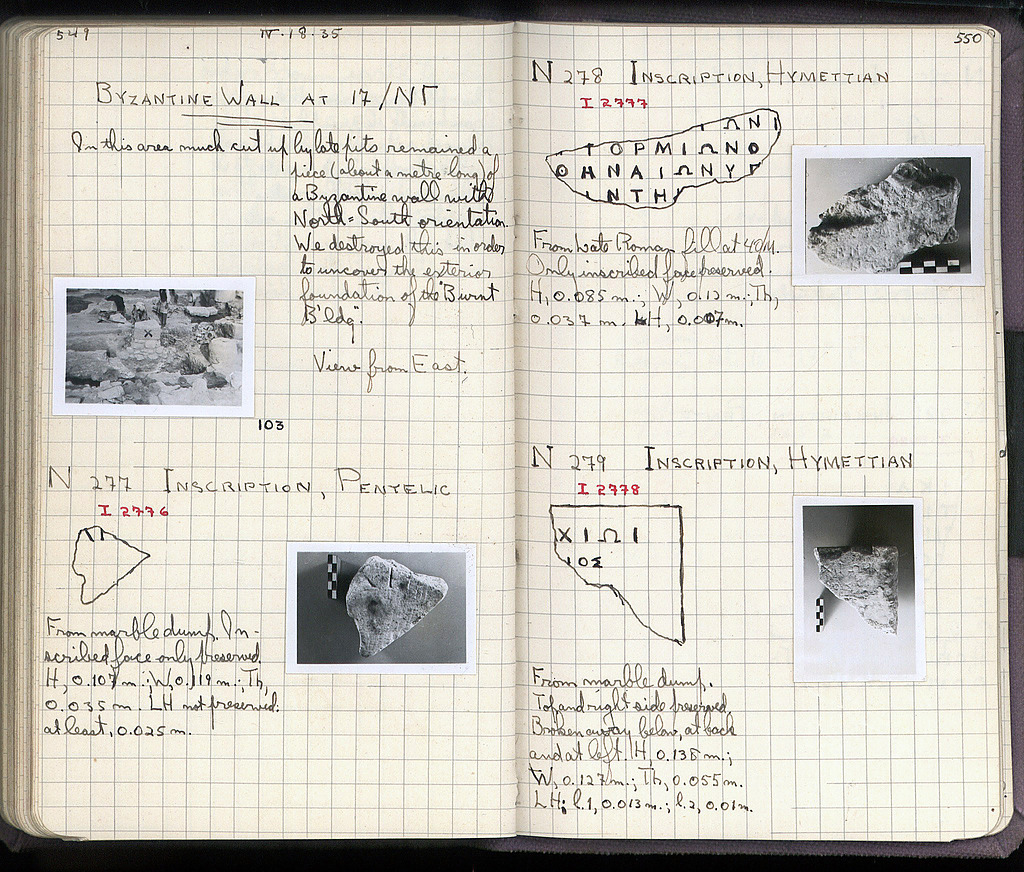 549
IV·18·35
BYZANTINE WALL AT 17/ΝΓ
In this area much cut up by late pits remained a
piece (about a metre long) of
a Byzantine wall with
North-South orientation.
We destroyed this in order
to uncover the exterior
foundation of the "Burnt
B'ldg".
View from East.
X
103
N 277 INSCRIPTION, PENTELIC
I 2776
From marble dump. In-
scribed face only preserved.
H, 0.107 m.; W, 0.119 m.; Th,
0.035 m. LH not preserved:
at least, 0.025 m.
550
N 278 INSCRIPTION, HYMETTIAN
I 2777
ΙΩΝΙ
ΤΟΡΜΙΩΝΟ
ΘΗΝΑΙΩΝΥΓ
ΙΝΤΗΙ
From Late Roman fill at
Only inscribed face preserved.
H, 0.085 m.; W, 0.12 m.; Th,
0.037 m. LH, 0.007 m.
N 279 INSCRIPTION, HYMETTIAN
I 2778
ΧΙΩΙ
ΙΟΣ
From marble dump.
Top and right side preserved.
Broken away below, at back
and at left. H, 0.138 m.;
W, 0.127 m.; Th, 0.055 m.
LH: l.1, 0.013 m.; l.2, 0.01 m.